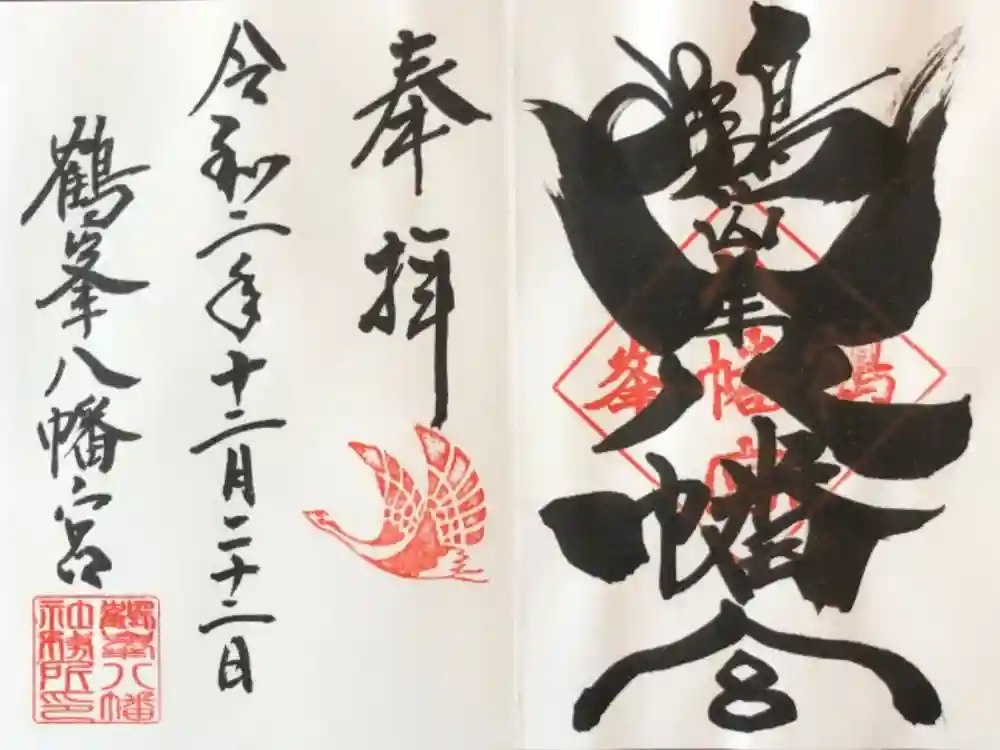 鶴峯八幡宮
奉拝
令和二年十二月二十二日
鶴峯八幡宮
鶴峯八幡社務所印